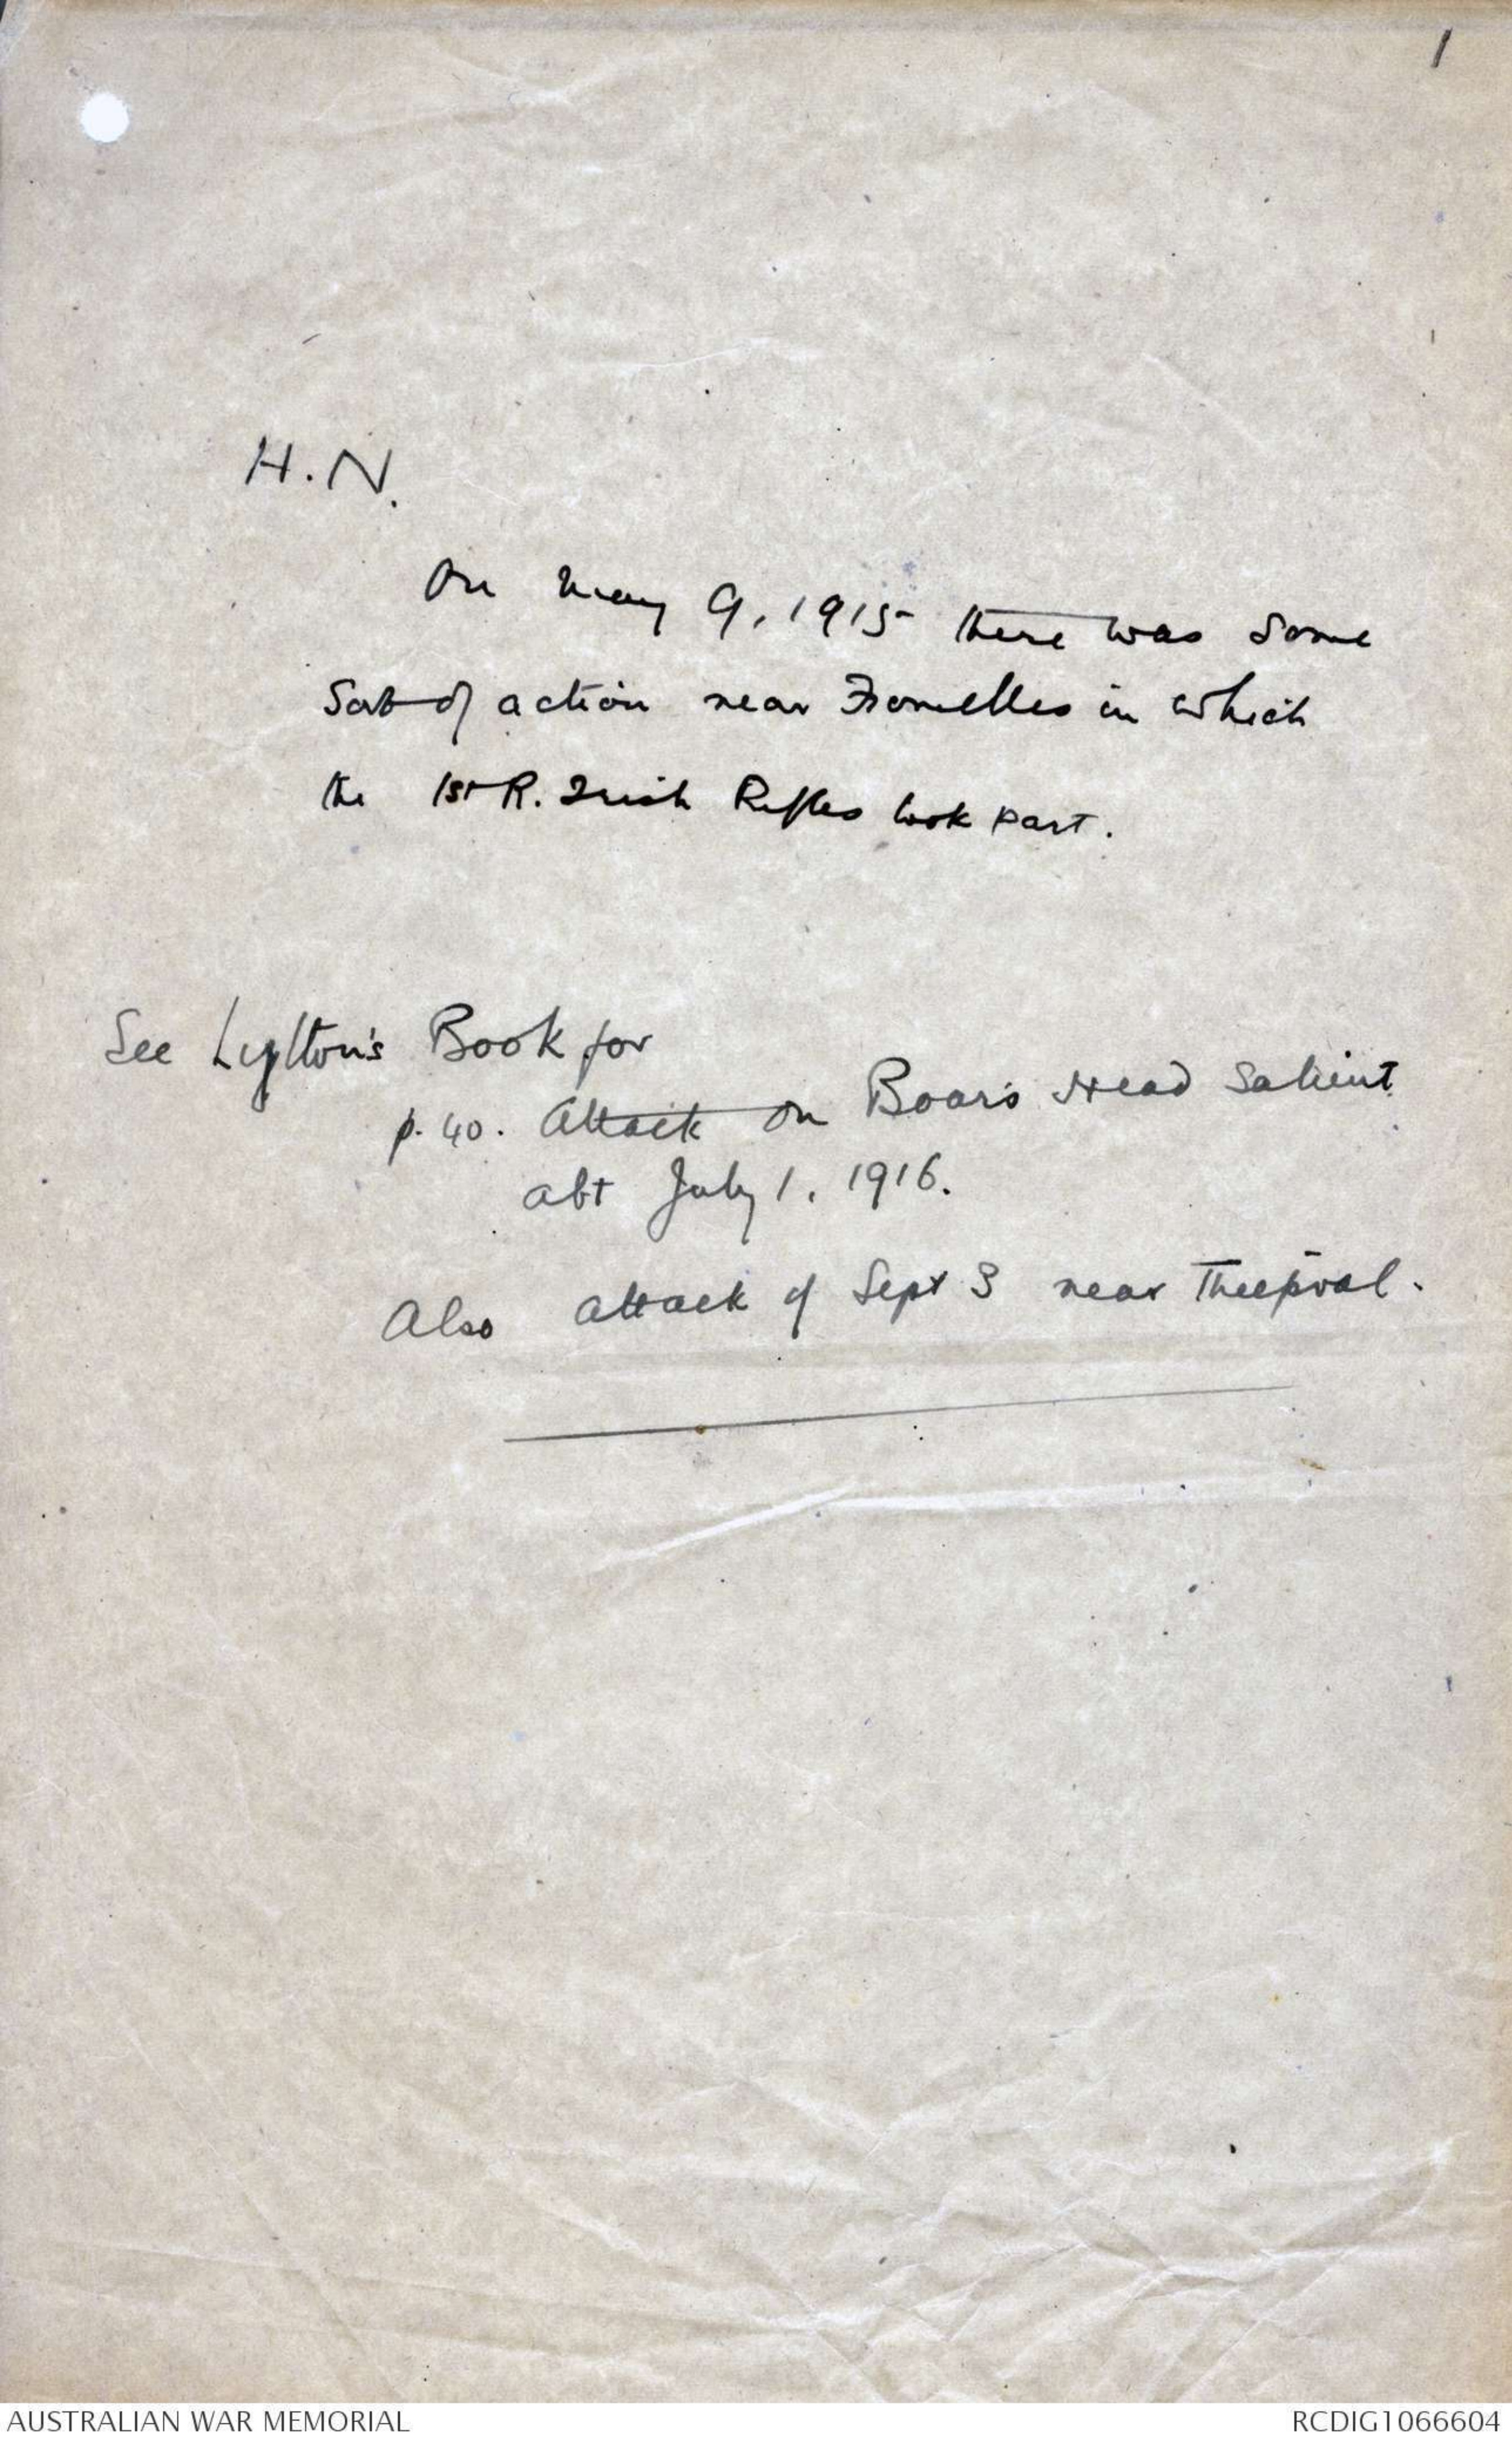 1
H.N.
On May 9, 1915 there was some
sort of action near Fromelles in which
the 1st R. Irish Rifles took part.
See Lytton's Book for
p. 40. Attack on Boar's Head Salient
abt July 1, 1916.
Also attack of Sept 3 near Thiepval.
AUSTRALIAN WAR MEMORIAL
RCDIG1066604